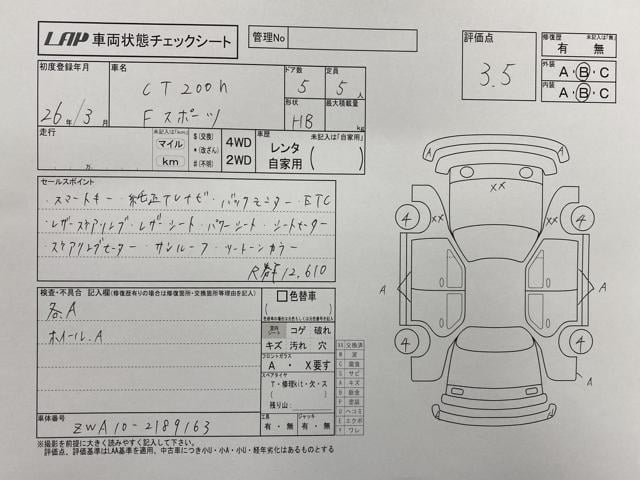 LAP 車両状態チェックシート
管理No
評価点
3.5
修復歴 未記入は「無」
有 無
外装 A・B・C
内装 A・B・C
初度登録年月
26年/3月
車名
CT200h
Fスポーツ
ドア数 5
定員 5人
形状 HB
最大積載量 kg
走行 未記入は「km」
万
マイル
km
$(交換)
*(改ざん)
#(不明)
4WD
2WD
車歴 未記入は「自家用」
レンタ
自家用
セールスポイント
・スマートキー ・純正TVナビ ・バックモニター ・ETC
・レザーステアリング ・レザーシート ・パワーシート ・シートヒーター
・ステアリングヒーター ・サンルーフ ・ツートーンカラー
R券¥12,610
検査・不具合 記入欄(修復歴有りの場合は修復箇所・交換箇所等理由を記入)
各.A
ホイール.A
色替車
室内シート コゲ 破れ
キズ 汚れ 穴
フロントガラス
A ・ X要す
スペアタイヤ
T・修理kit・欠・ス
残り山:
工具 有・無
ジャッキ 有・無
XX 交換済
W 波
C 腐食
S サビ
A キズ
B 鈑金
P 塗装
U ヘコミ
E エクボ
Y ワレ
車体番号
ZWA10-2189163
※撮影を前提に大きく読みやすく記入して下さい。
評価点、評価基準はLAA基準を適用、中古車につき小U・小A・小U・経年劣化はあるものとする
A
A
XX
4
XX
XX
4
A
A
4
4
A
A
A